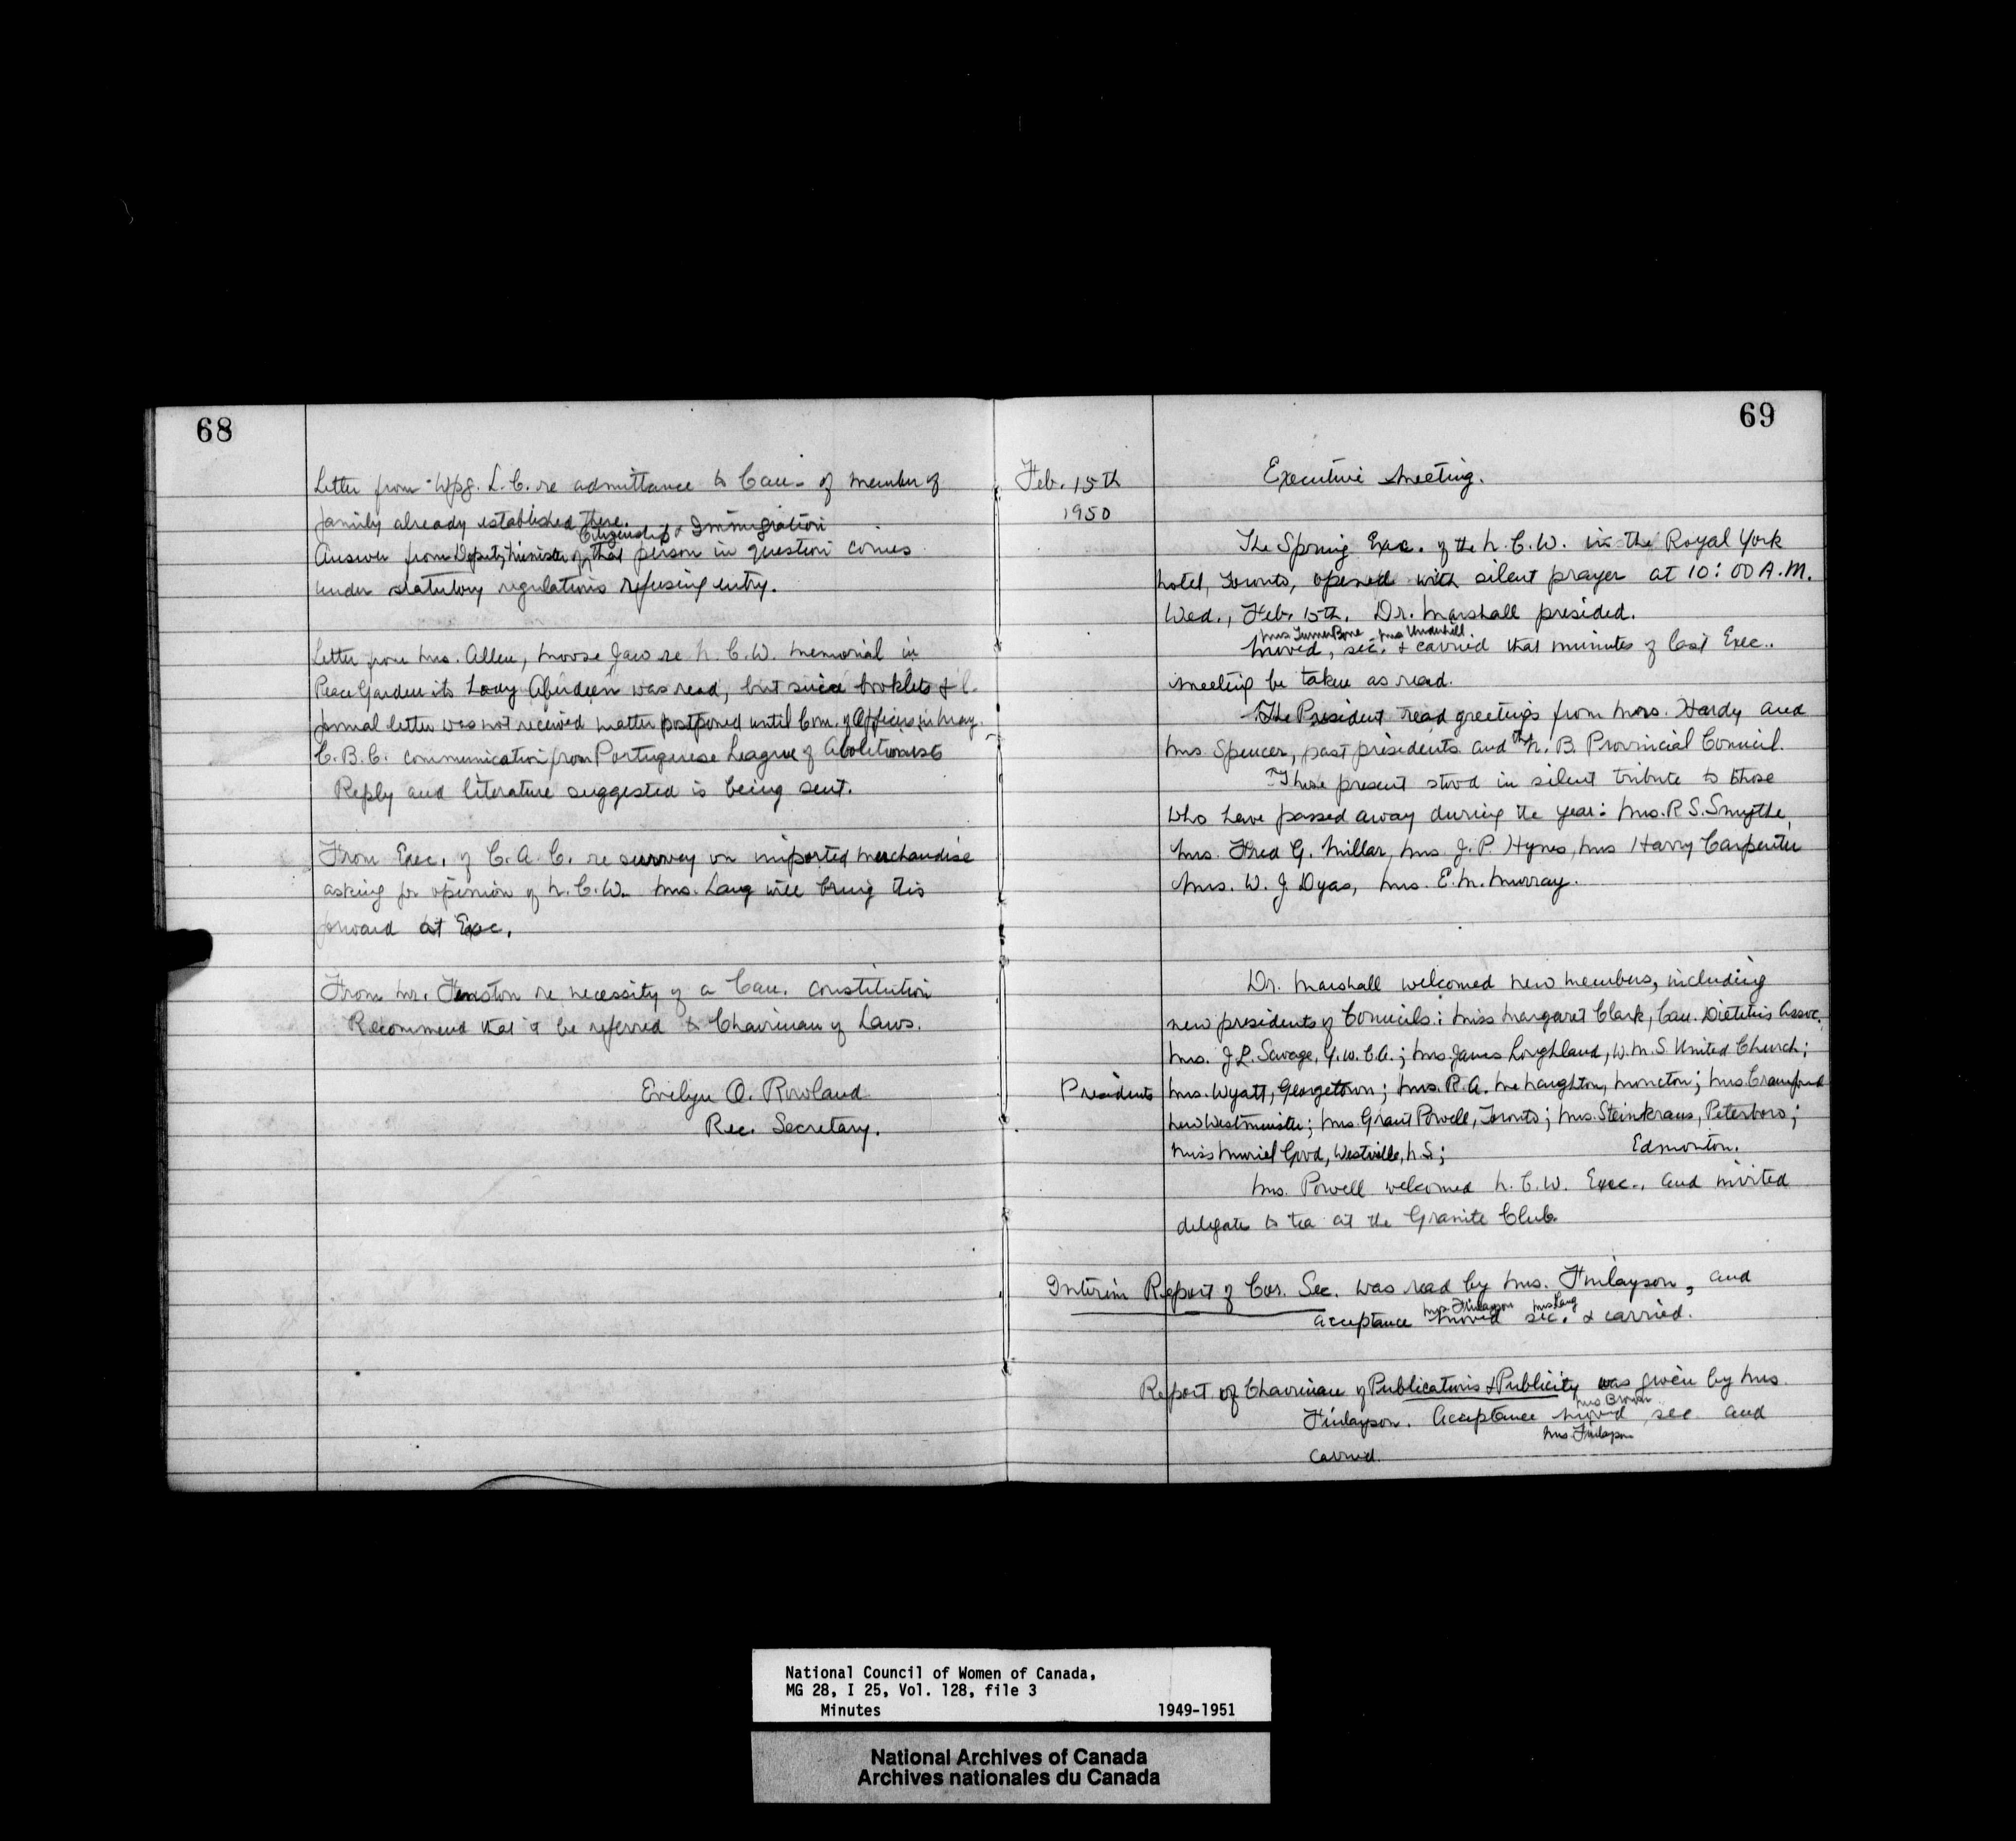 68
Letter from Wpg. L.C. re admittance to Can. of member of
family already established there.
Citizenship & Immigration
Answer from Deputy Minister of that person in question comes
under statutory regulations refusing entry.
Letter from Mrs. Allen, Moose Jaw re N.C.W. memorial in
Peace Garden its Lady Aberdeen was read, but since booklets &
formal letter was not received matter postponed until Com. of Officers in May.
C.B.C. communication from Portuguese League of Abolitionists
Reply and literature suggested is being sent.
From Exec. of C.A.C. re survey on imported merchandise
asking for opinion of N.C.W. Mrs. Lang will bring this
forward at Exec.
From Mr. re necessity of a Can. Constitution
Recommend that it be referred to Chairman of Laws.
Evelyn O. Rowland
Rec. Secretary.
69
Feb. 15th
1950
Executive Meeting.
The Spring Exec. of the N.C.W. in the Royal York
Hotel, Toronto, opened with silent prayer at 10:00 A.M.
Wed., Feb. 15th. Dr. Marshall presided.
Mrs Turner Bone Mrs Underhill
Moved, sec. & carried that minutes of last Exec.
meeting be taken as read.
The President read greetings from Mrs. Hardy and
Mrs Spencer, past presidents and the N.B. Provincial Council.
Those present stood in silent tribute to those
who have passed away during the year: Mrs. R.S. Smythe,
Mrs. Fred G. Millar, Mrs. J.P. Hynes, Mrs Harry Carpenter
Mrs. W.J. Dyas, Mrs. E.M. Murray.
Dr. Marshall welcomed new members, including
new presidents of Councils: Miss Margaret Clark, Can. Dietetics Assoc.,
Mrs. J.L. Savage, Y.W.C.A.; Mrs. James Loughland, W.M.S. United Church;
Presidents Mrs. Wyatt, Georgetown; Mrs. R.A. McNaughton, Moncton; Mrs. Crawford
New Westminster; Mrs. Grant Powell, Toronto; Mrs. Steinkraus, Peterboro;
Miss Muriel Good, Westville, N.S.; Edmonton.
Mrs. Powell welcomed N.C.W. Exec., and invited
delegate to tea at the Granite Club.
Interim Report of Cor. Sec. was read by Mrs. Finlayson, and
Mrs. Finlayson Mrs Lang
acceptance moved sec. & carried.
Report of Chairman of Publications & Publicity was given by Mrs.
Mrs Brown
Finlayson. Acceptance moved, sec. and
Mrs Finlayson
carried.
National Council of Women of Canada,
MG 28, I 25, Vol. 128, file 3
Minutes 1949-1951
National Archives of Canada
Archives nationales du Canada